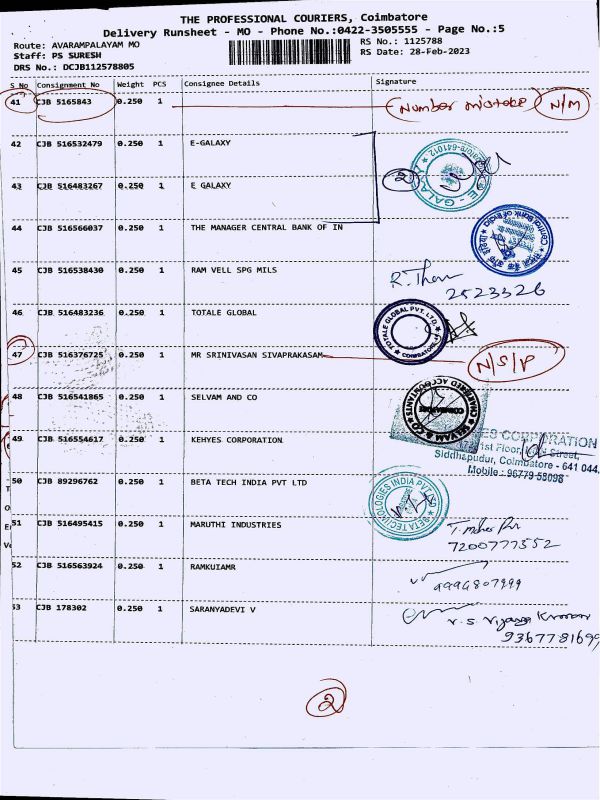 THE PROFESSIONAL COURIERS, Coimbatore
Delivery Runsheet - MO - Phone No.:0422-3505555 - Page No.:5
Route: AVARAMPALAYAM MO
Staff: PS SURESH
DRS No.: DCJB112578805
RS No.: 1125788
RS Date: 28-Feb-2023
S No Consignment No Weight PCS Consignee Details Signature
41 CJB 5165843 0.250 1 Number mistake N/M
42 CJB 516532479 0.250 1 E-GALAXY
43 CJB 516483267 0.250 1 E GALAXY
E - GALAXY
641012
44 CJB 516566037 0.250 1 THE MANAGER CENTRAL BANK OF IN
Central Bank of India
45 CJB 516538430 0.250 1 RAM VELL SPG MILS
2523326
46 CJB 516483236 0.250 1 TOTALE GLOBAL
TOTALE GLOBAL PVT. LTD.
COIMBATORE
47 CJB 516376725 0.250 1 MR SRINIVASAN SIVAPRAKASAM N/S/P
48 CJB 516541865 0.250 1 SELVAM AND CO
SELVAM & CO
CHARTERED ACCOUNTANTS
COIMBATORE
49 CJB 516554617 0.250 1 KEHYES CORPORATION
ES CORPORATION
1st Floor, Street,
Siddhapudur, Coimbatore - 641 044.
Mobile : 96779 58098
50 CJB 89296762 0.250 1 BETA TECH INDIA PVT LTD
BETA TECHNOLOGIES INDIA PVT
51 CJB 516495415 0.250 1 MARUTHI INDUSTRIES
7200777552
52 CJB 516563924 0.250 1 RAMKUIAMR
9994807999
53 CJB 178302 0.250 1 SARANYADEVI V
9367781699
2